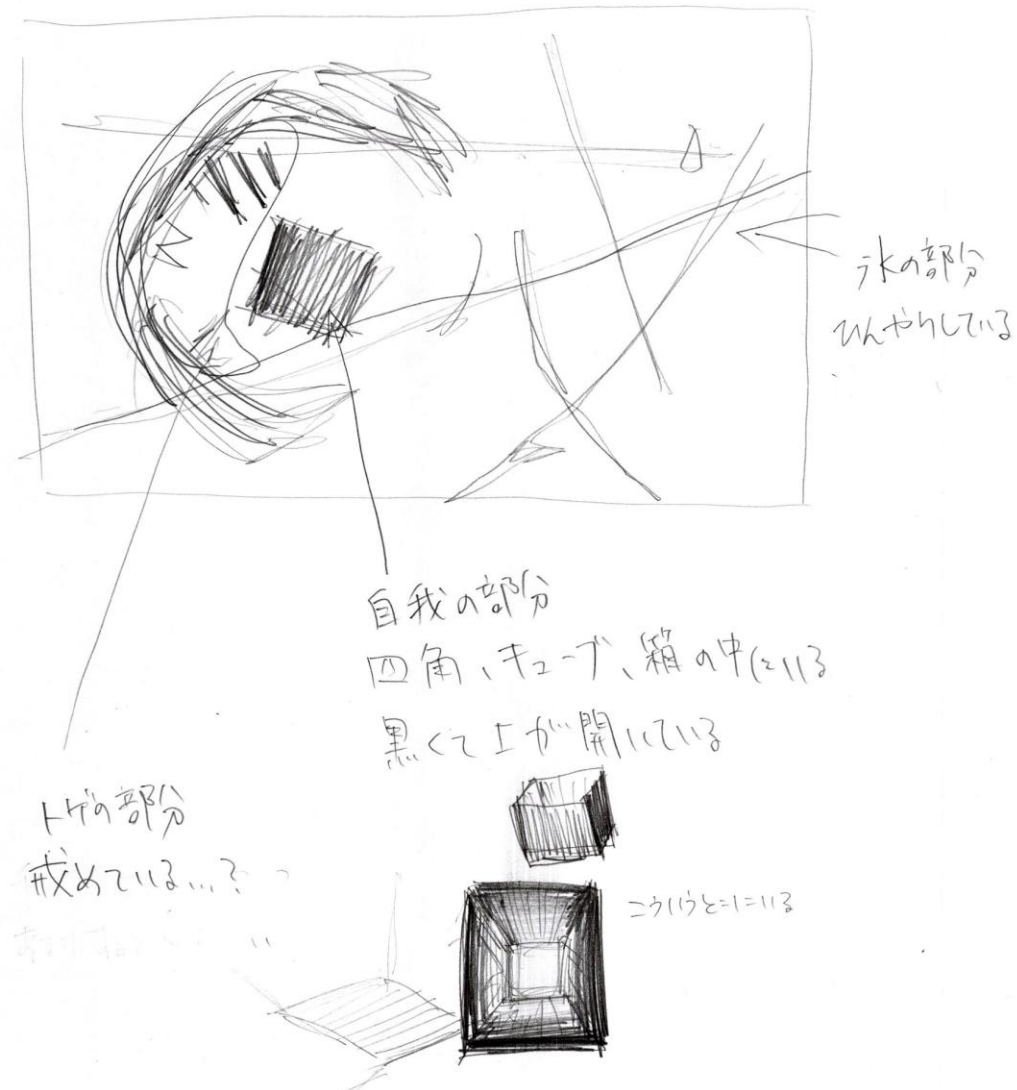 氷の部分
ひんやりしている
自我の部分
四角、キューブ、箱の中にいる
黒くて上が開いている
トゲの部分
戒めている…?
こういうとこにいる